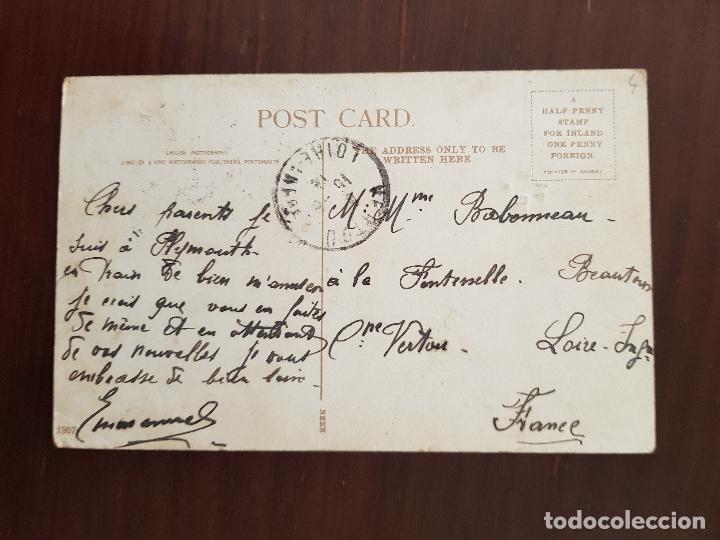 4
POST CARD.
A
HALF PENNY
STAMP
FOR INLAND
ONE PENNY
FOREIGN.
PRINTED IN SAXONY
ENGLISH PHOTOGRAPHY
& SONS PHOTOGRAPHIC PUBLISHERS, PORTSMOUTH
THE ADDRESS ONLY TO BE
WRITTEN HERE
VERTOU
LOIRE-INFRE
Chers parents je
suis à Plymouth
en train de bien m'amuser
je crois que vous en faites
de même et en attendant
de vos nouvelles je vous
embrasse de bien loin.
Emmanuel
1957
M. Mme Babonneau
à la Fontenelle. Beautour
Cne Vertou. Loire-Infre
France
NEEN
todocoleccion
todocoleccion.net